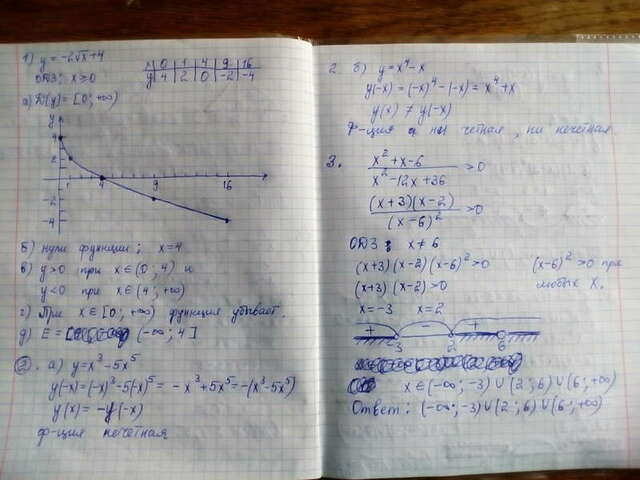 1) y = -2√x + 4
x 0 1 4 9 16
y 4 2 0 -2 -4
ОДЗ: x ≥ 0
а) D(y) = [0; +∞)
y
4
2
1 4 9 16
-2
-4
б) нули функции: x = 4
в) y > 0 при x ∈ (0; 4) и
y < 0 при x ∈ (4; +∞)
г) При x ∈ [0; +∞) функция убывает.
д) E = (-∞; 4]
2. а) y = x³ - 5x⁵
y(-x) = (-x)³ - 5(-x)⁵ = -x³ + 5x⁵ = -(x³ - 5x⁵)
y(x) = -y(-x)
ф-ция нечетная
2. б) y = x⁴ - x
y(-x) = (-x)⁴ - (-x) = x⁴ + x
y(x) ≠ y(-x)
Ф-ция ни четная, ни нечетная
3.
x² + x - 6 / x² - 12x + 36 > 0
(x+3)(x-2) / (x-6)² > 0
ОДЗ: x ≠ 6
(x+3)(x-2)(x-6)² > 0 (x-6)² > 0 при
(x+3)(x-2) > 0 любых x.
x = -3 x = 2
+ - + +
-3 2 6
x ∈ (-∞; -3) ∪ (2; 6) ∪ (6; +∞)
Ответ: (-∞; -3) ∪ (2; 6) ∪ (6; +∞)